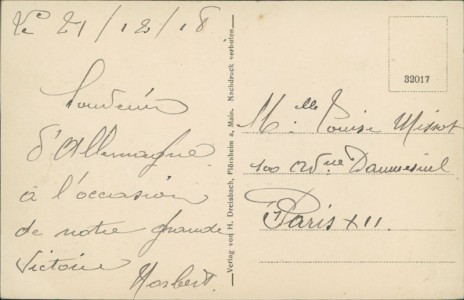 Le 21/12/18
Souvenir
d'Allemagne
à l'occasion
de notre grande
Victoire
Norbert.
Verlag von H. Dreisbach, Flörsheim a. Main. Nachdruck verboten.
32017
Mlle Louise
100 Daumesnil
Paris XII.